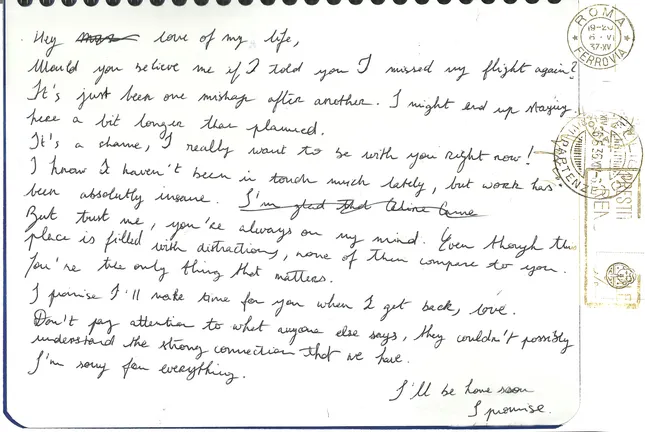 Hey love of my life,
Would you believe me if I told you I missed my flight again?
It's just been one mishap after another. I might end up staying
here a bit longer than planned.
It's a shame, I really want to be with you right now!
I know I haven't been in touch much lately, but work has
been absolutely insane. I'm glad that Celine came
But trust me, you're always on my mind. Even though this
place is filled with distractions, none of them compare to you.
You're the only thing that matters.
I promise I'll make time for you when I get back, love.
Don't pay attention to what anyone else says, they couldn't possibly
understand the strong connection that we have.
I'm sorry for everything.
I'll be home soon
I promise.
ROMA
FERROVIA